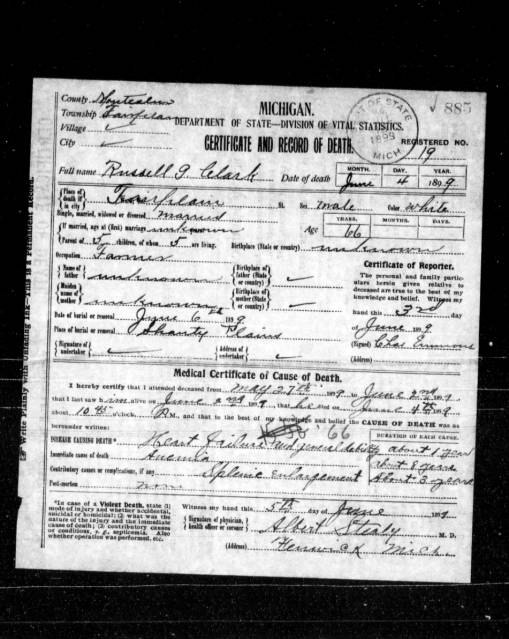 County Montcalm
Township Fairplain
Village ✓
City ✓
MICHIGAN.
DEPARTMENT OF STATE—DIVISION OF VITAL STATISTICS.
CERTIFICATE AND RECORD OF DEATH.
OF STATE 1899 MICH
√ 885
REGISTERED NO.
19
Full name Russell G Clark Date of death
MONTH. DAY. YEAR.
June 4 1899
{Place of death if in city} Fairplain St. Sex male Color White
Single, married, widowed or divorced married
YEARS. MONTHS. DAYS.
{If married, age at (first) marriage unknown Age 66
{Parent of 5 children, of whom 5 are living. Birthplace (State or country) unknown
Occupation Farmer
{Name of father} unknown {Birthplace of father (State or country)} ✓
{Maiden name of mother} unknown {Birthplace of mother (State or country)} ✓
Date of burial or removal June 6th 1899
Place of burial or removal Shanty Plains
{Signature of undertaker} ✓ {Address of undertaker} ✓
Certificate of Reporter.
The personal and family particulars herein given relative to deceased are true to the best of my knowledge and belief. Witness my
hand this 3rd day
of June 1899
(Signed) Chas Emmons
(Address)
Medical Certificate of Cause of Death.
I hereby certify that I attended deceased from May 27th 1899 to June 2nd 1899
that I last saw him alive on June 2nd 1899, that he died on June 4th 1899
about 10 o'clock, M., and that to the best of my knowledge and belief the CAUSE OF DEATH was as
hereunder written: '66
DURATION OF EACH CAUSE.
DISEASE CAUSING DEATH* Heart failure and general debility about 1 year
Immediate cause of death Anemia about 8 years
Contributory causes or complications, if any Splenic enlargement About 3 years
Post-mortem
*In case of a Violent Death, state (1) mode of injury and whether accidental, suicidal or homicidal; (2) what was the nature of the injury and the immediate cause of death; (3) contributory causes or conditions, e. g., septicemia. Also whether operation was performed, etc.
Witness my hand this 5th day of June 1899
{Signature of physician, health officer or coroner} Albert Stealy M. D.
(Address) Fenwick Mich